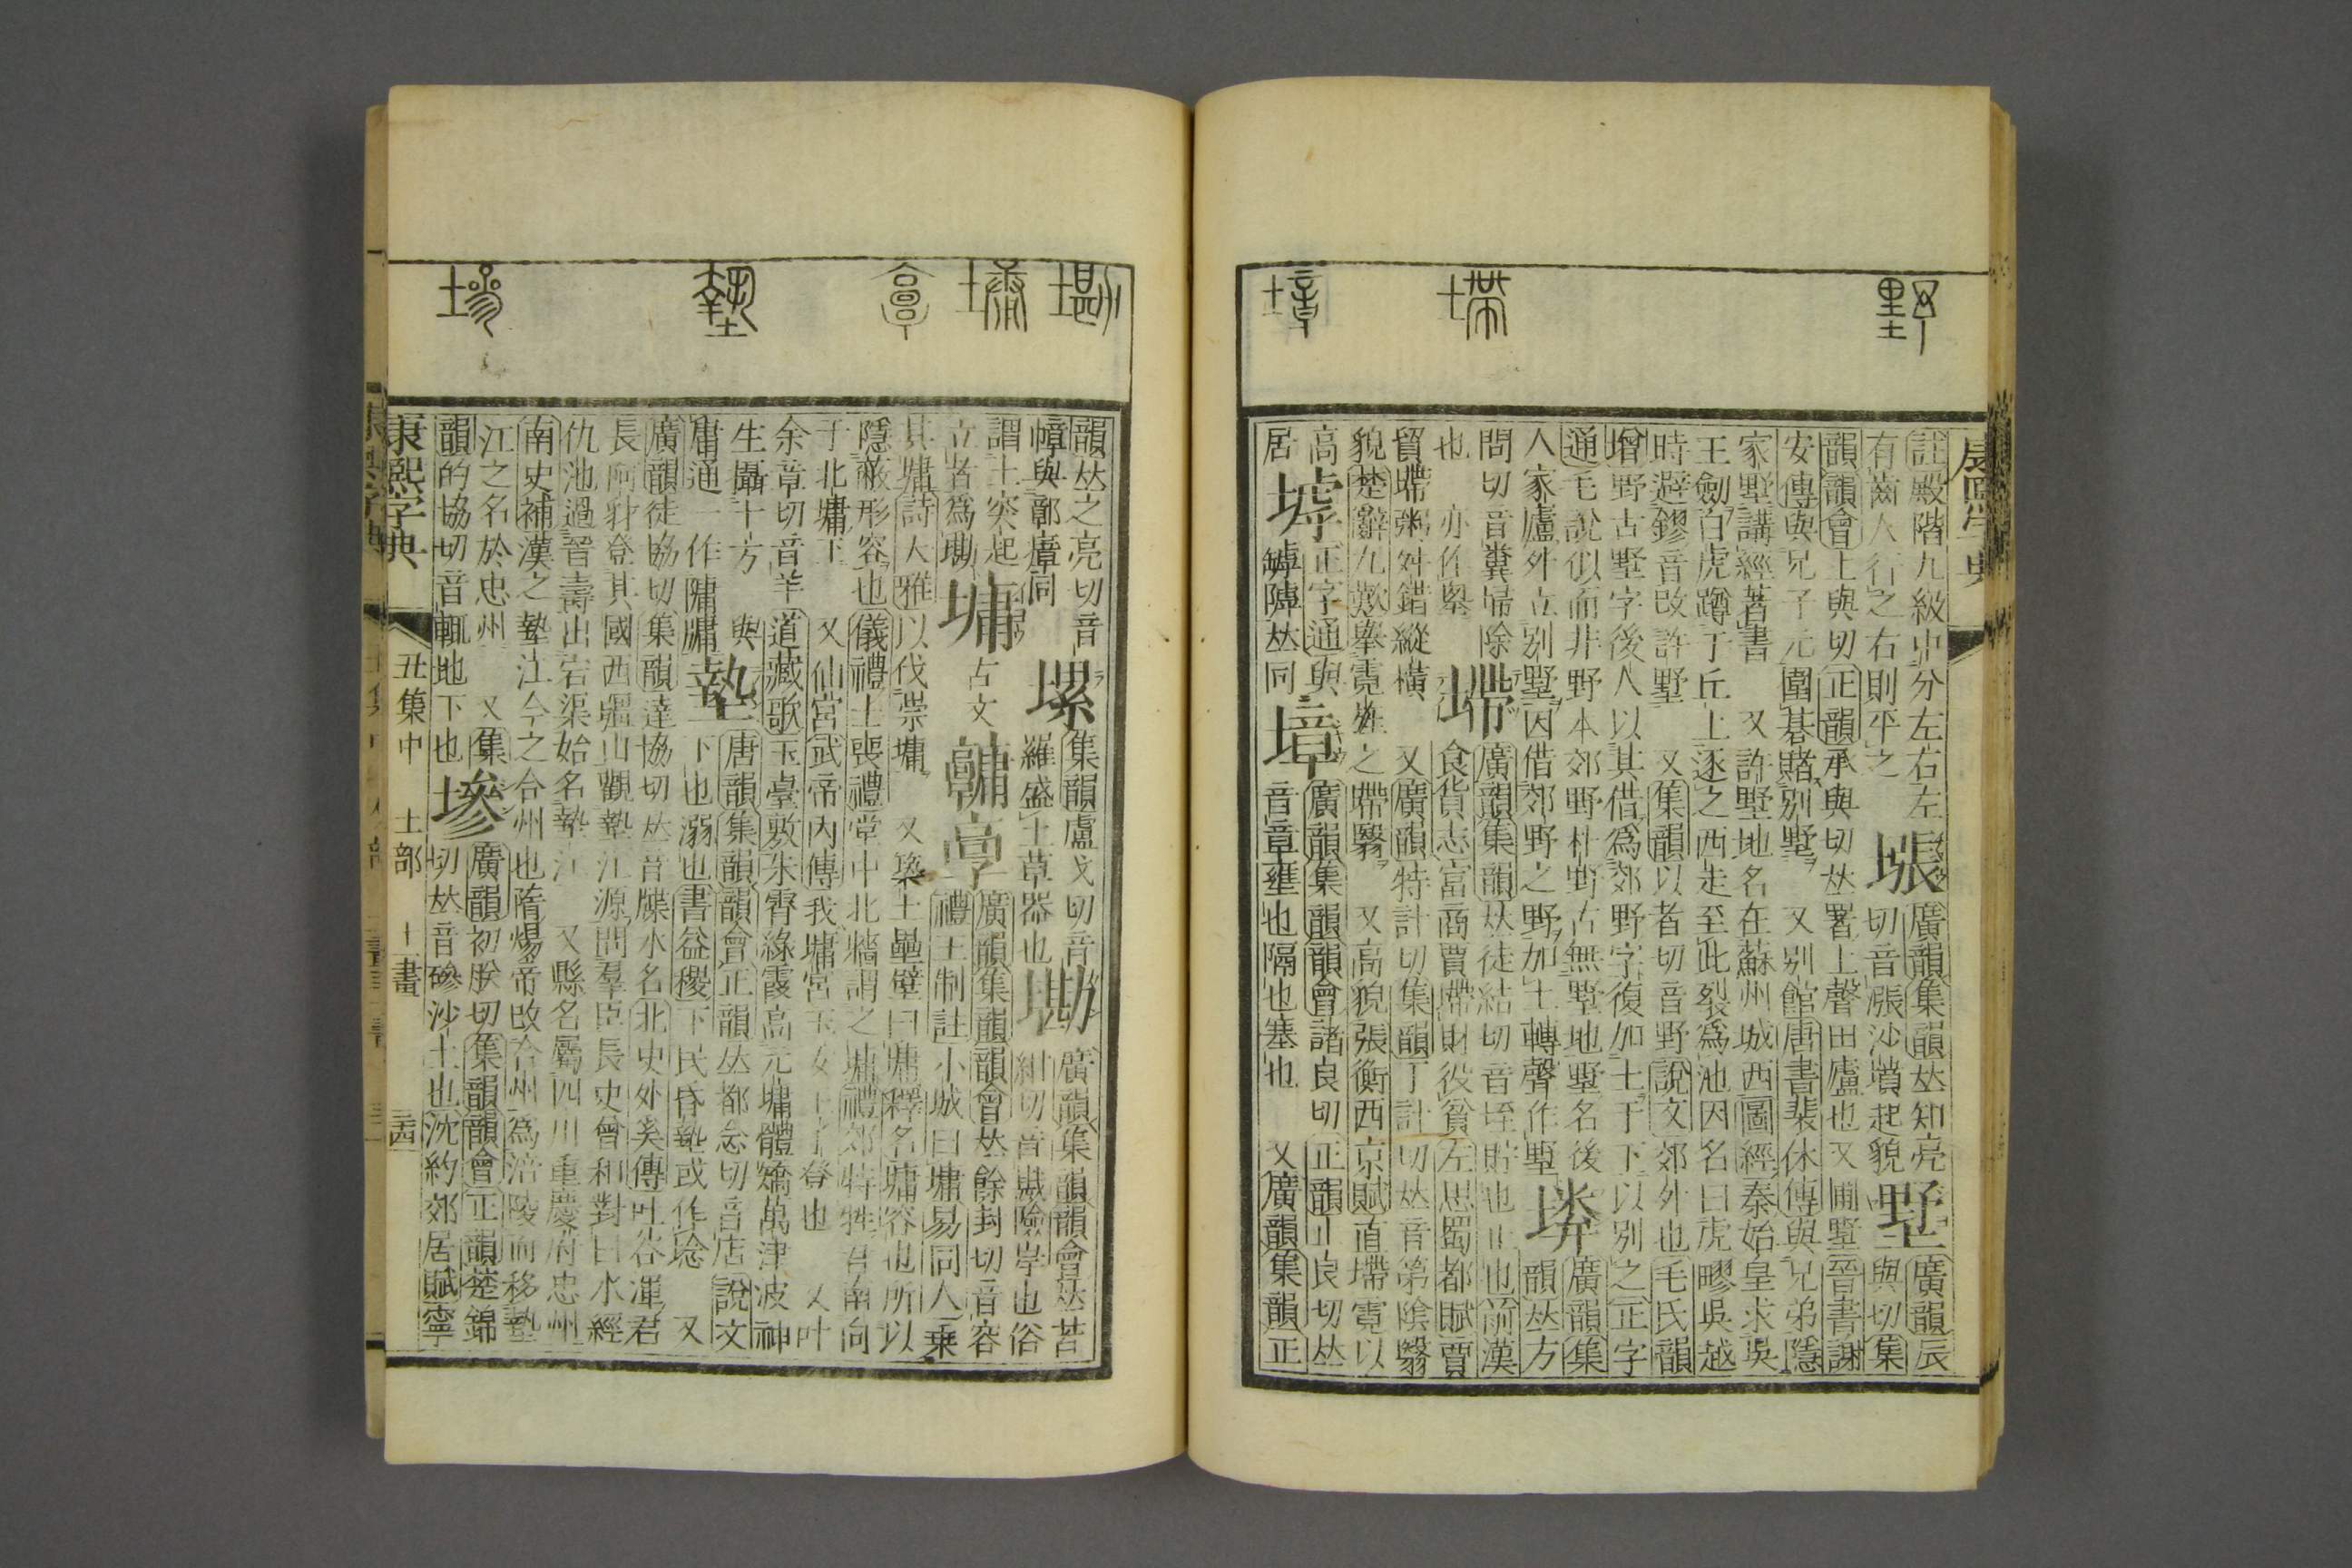 野
墆
墇
註殿階九級中分左右左
有齒人行之右則平之
墋
廣韻集韻𠀤知亮
切音漲沙墳起貌
墅
廣韻辰
與切集
韻韻會上與切正韻承與切𠀤署上聲田廬也又圃墅晉書謝
安傳與兄子元圍碁賭別墅 又別館唐書裴休傳與兄弟隱
家墅講經著書 又許墅地名在蘇州城西圖經秦始皇求吳
王劒白虎蹲于丘上逐之西走至此裂爲池因名曰虎疁吳越
時避鏐音改許墅 又集韻以者切音野說文郊外也毛氏韻
增野古墅字後人以其借爲郊野字復加土于下以別之正字
通毛說似而非野本郊野村野古無墅地墅名後
人家廬外立別墅因借郊野之野加土轉聲作墅
廣韻集
韻𠀤方
問切音糞埽除
也 亦作㙻
墆
廣韻集韻𠀤徒結切音垤貯也止也前漢
食貨志富商賈墆財役貧左思蜀都賦賈
貿墆鬻舛錯縱橫 又廣韻特計切集韻丁計切𠀤音第陰翳
貌楚辭九歎舉霓旌之墆翳 又高貌張衡西京賦直墆霓以
高
居
墟
正字通與
罅㙤𠀤同
墇
廣韻集韻韻會諸良切正韻止良切𠀤
音章壅也隔也塞也 又廣韻集韻正
墈
墉
𩫖
墊
墋
韻𠀤之亮切音
幛與鄣㢓同
塿
集韻盧戈切音
羅盛土草器也
墈
廣韻集韻韻會𠀤苦
紺切音瞰險岸也俗
謂土突起
立者爲墈
墉
古文
𩫏
𩫖
廣韻集韻韻會𠀤餘封切音容
禮王制註小城曰墉易同人乗
其墉詩大雅以伐崇墉 又築土壘壁曰墉釋名墉容也所以
隱蔽形容也儀禮士喪禮堂中北牆謂之墉禮郊特牲君南向
于北墉下 又仙宮武帝內傳我墉宮玉女王子登也 又叶
余章切音羊道藏歌玉臺敷朱霄綠霞高元墉體矯萬津波神
生躡十方 與
庸通一作隯牗
墊
唐韻集韻韻會正韻𠀤都念切音店說文
下也溺也書益稷下民昏墊或作埝 又
廣韻徒協切集韻達協切𠀤音牒水名北史外奚傳吐谷渾君
長阿豺登其國西疆山觀墊江源問羣臣長史曾和對曰水經
仇池過晉壽出宕渠始名墊江 又縣名屬四川重慶府忠州
南史補漢之墊江今之合州也隋煬帝改合州爲涪陵而移墊
江之名於忠州 又集
韻的協切音輒地下也
墋
廣韻初朕切集韻韻會正韻楚錦
切𠀤音磣沙土也沈約郊居賦寧
康熙字典 丑集中 土部 十一畫 三四